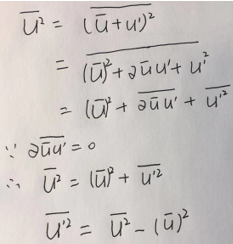 $\overline{u^2} = \overline{(\bar{u}+u')^2}$
$= \overline{(\bar{u})^2+2\bar{u}u'+u'^2}$
$= (\bar{u})^2+\overline{2\bar{u}u'}+\overline{u'^2}$
$\because \overline{2\bar{u}u'}=0$
$\therefore \overline{u^2}=(\bar{u})^2+\overline{u'^2}$
$\overline{u'^2}=\overline{u^2}-(\bar{u})^2$